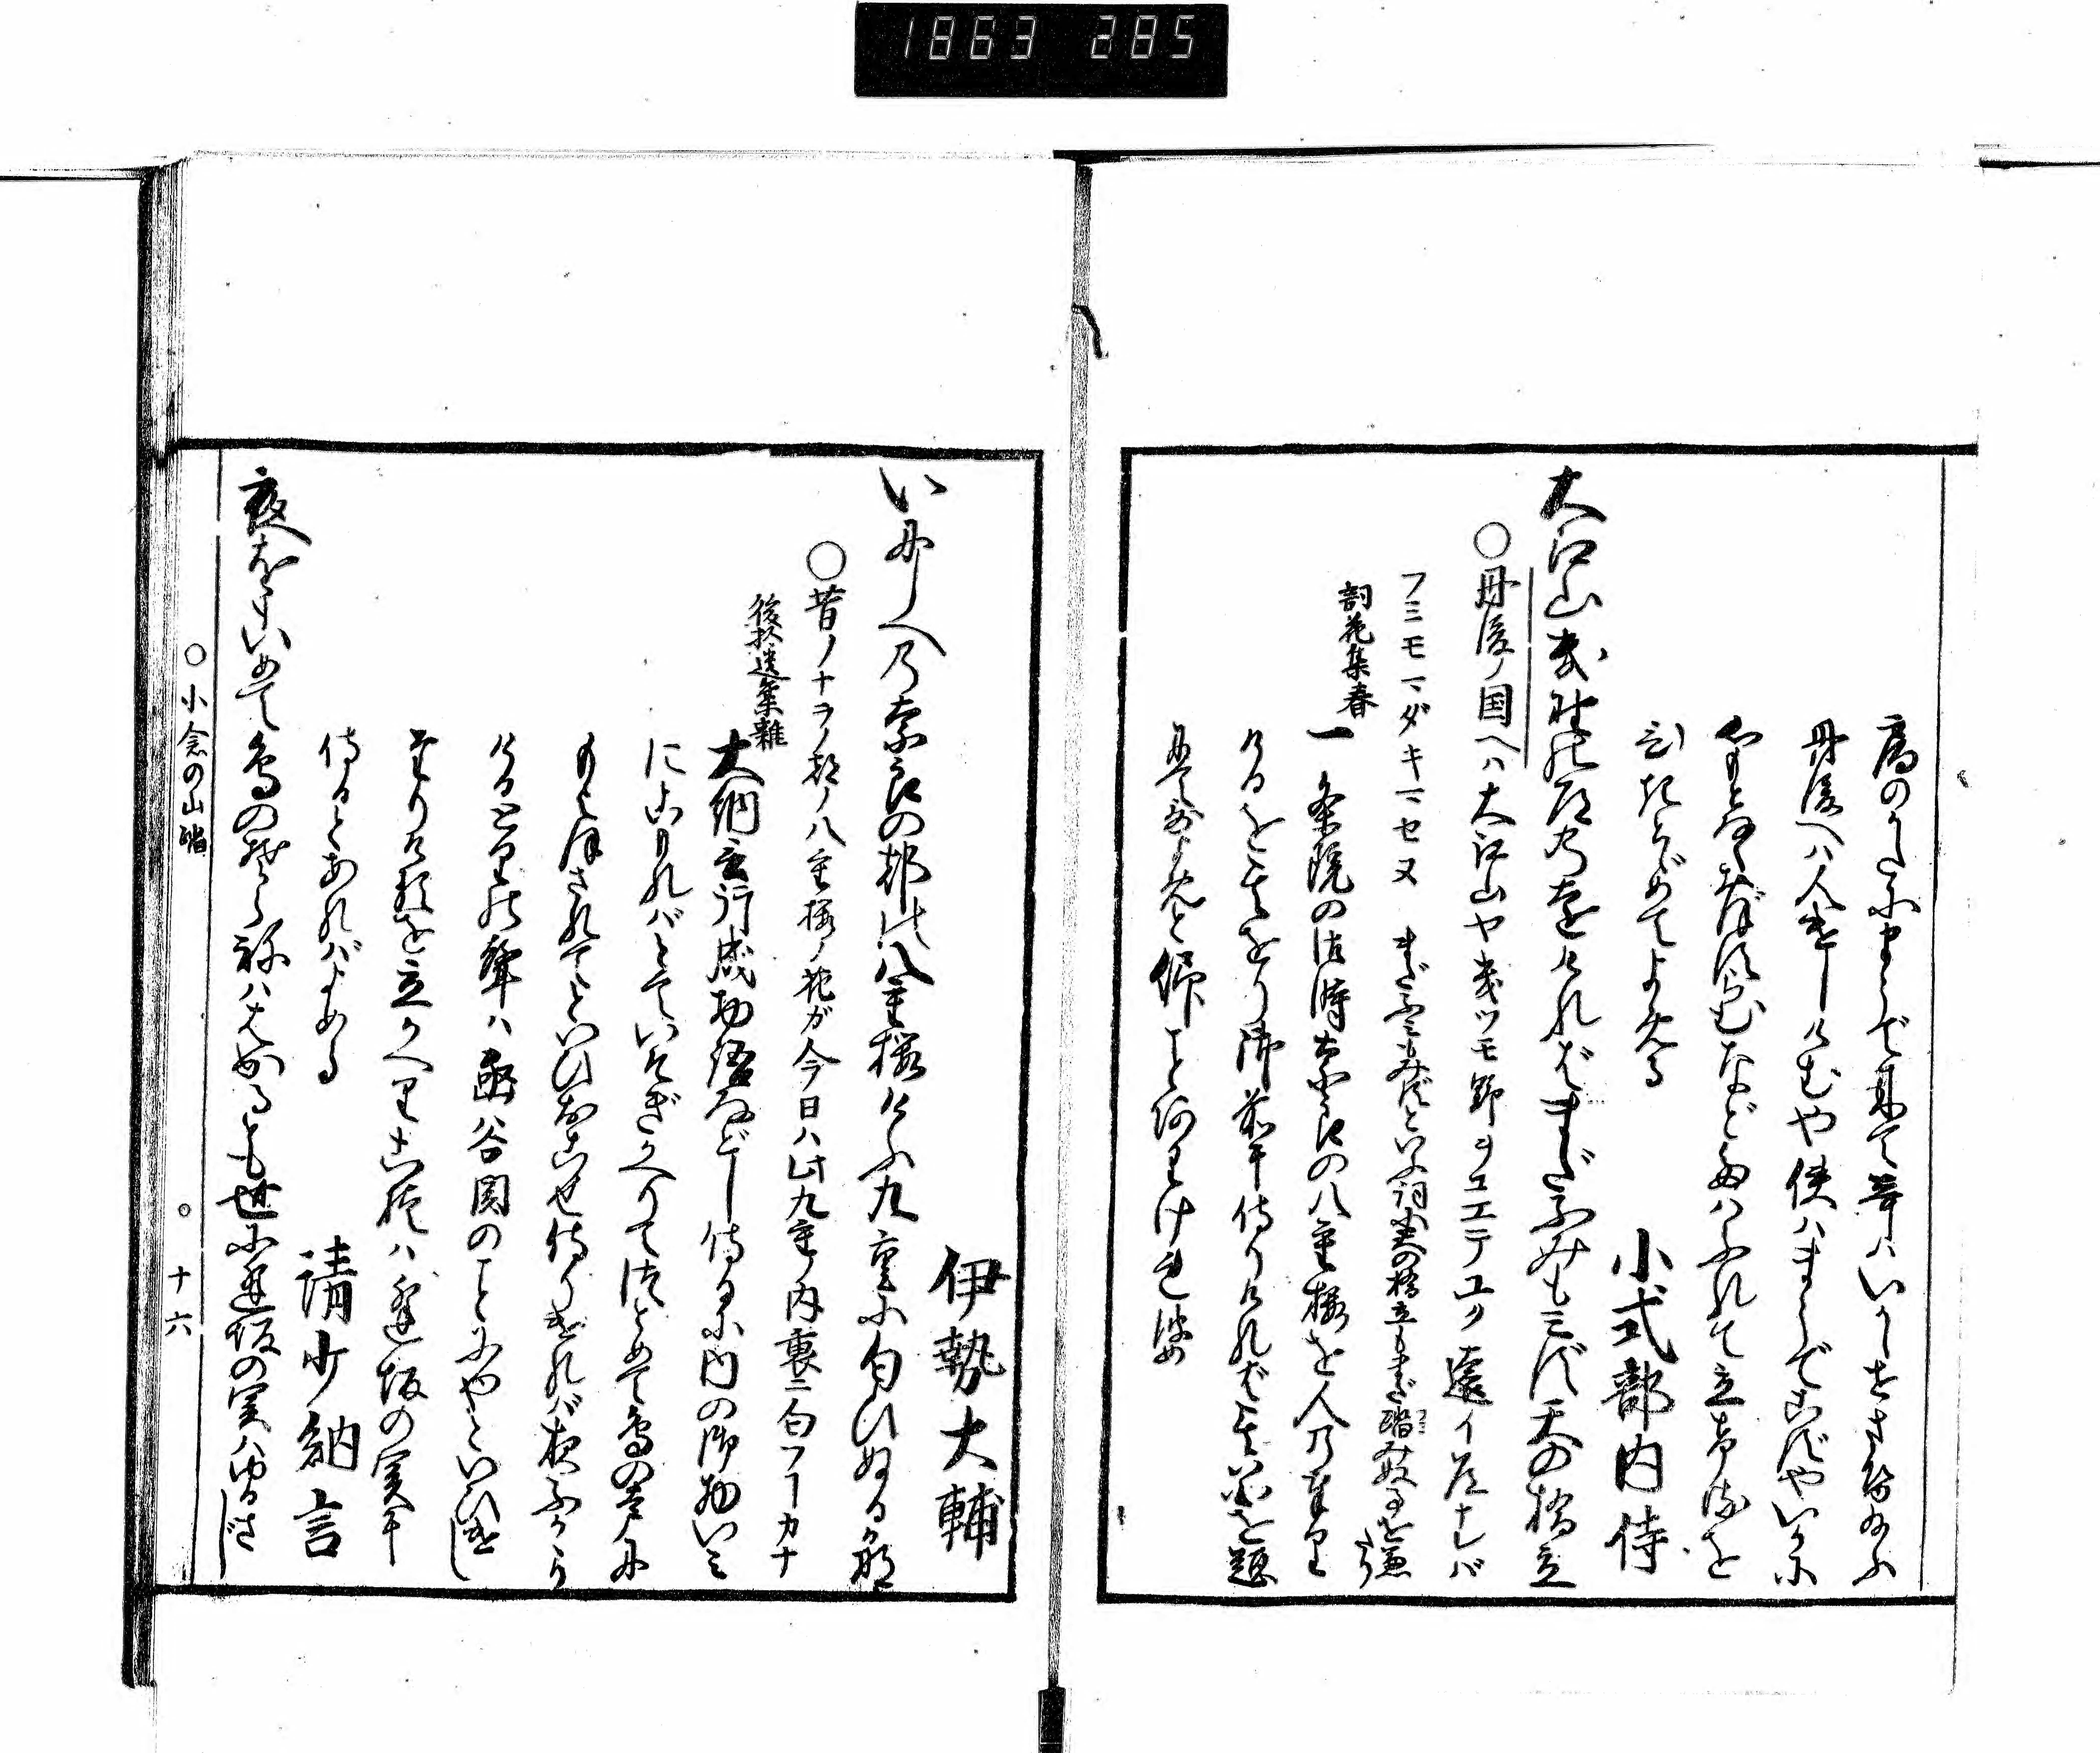 1863 285
局のかたにまうで来て歌はいかゞせさせ給ふ
丹後へハ人遣しけむや使ハまうでこずやいかに
心もとなくおぼすらむなどたはふれて立けるを
ひきとゞめてよめる
小式部内侍
大江山幾野の道の遠ければまだふみもみず天の橋立
○丹後ノ国ヘハ大江山ヤ幾ツモ野ヲコエテユク遠イ道ナレバ
フミモマダキマセヌ まだふみもみずといふ詞天の橋立もまだ踏みぬ事を兼たり
詞花集春
一条院の御時奈良の八重桜を人の奉り
けるを其をり御前に侍りければ其花を題
にて歌よめと仰ことありければ
伊勢大輔
いにしへの奈良の都の八重桜けふ九重に匂ひぬる哉
○昔ノナラノ都ノ八重桜ノ花ガ今日ハ此九重ノ内裏ニ匂フ￢カナ
後拾遺集雑
大納言行成物語などし侍るに内の御物いミ
にこもればとていそぎかへりてつとめて鳥の声に
もよほされてといひおこせ侍りければ夜ふかゝり
ける鳥の声ハ函谷関のことにやといひ遣し
たりけるを立かへりこれハ逢坂の関に
侍るとあればよめる
清少納言
夜をこめて鳥のそらねハはかるとも世に逢坂の関ハゆるさじ
○小倉の山踏
○十六